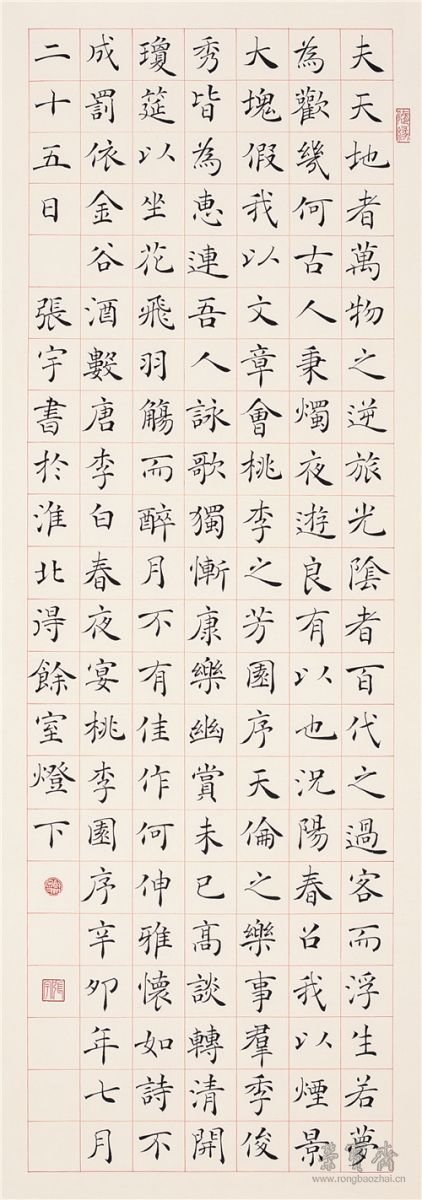 夫天地者萬物之逆旅光陰者百代之過客而浮生若夢
為歡幾何古人秉燭夜遊良有以也況陽春召我以煙景
大塊假我以文章會桃李之芳園序天倫之樂事羣季俊
秀皆為惠連吾人詠歌獨慚康樂幽賞未已高談轉清開
瓊筵以坐花飛羽觴而醉月不有佳作何伸雅懷如詩不
成罰依金谷酒數唐李白春夜宴桃李園序辛卯年七月
二十五日 張宇書於淮北得餘室燈下
榮寶齋
www.rongbaozhai.cn